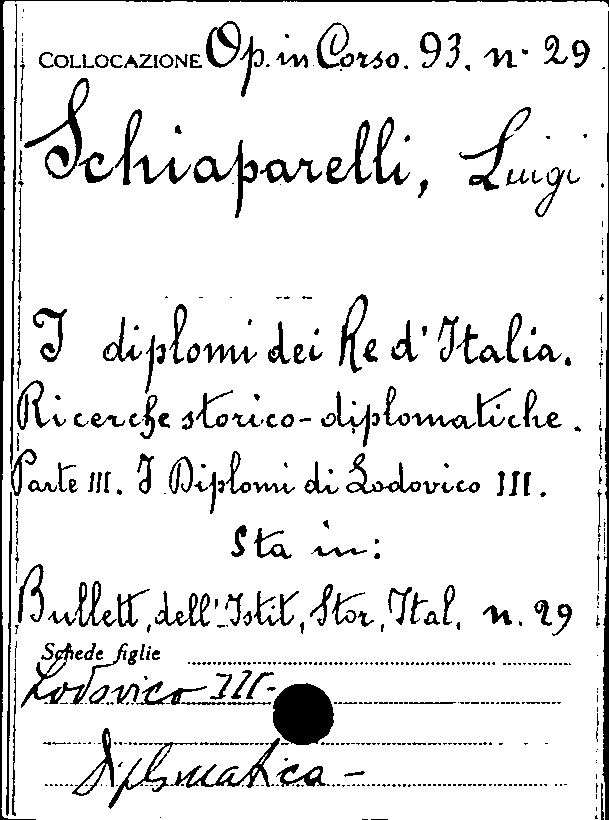 COLLOCAZIONE Op. in Corso. 93. n. 29
Schiaparelli, Luigi
I diplomi dei Re d'Italia.
Ricerche storico-diplomatiche.
Parte III. I Diplomi di Lodovico III.
Sta in:
Bullett, dell'Istit, Stor, Ital, n. 29
Schede figlie
Lodovico III-
Diplomatica-